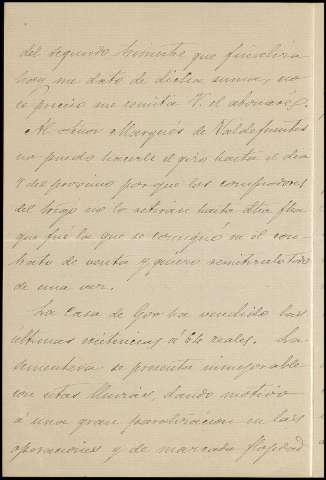 del segundo trimestre que finaliza
hoy me dato de dicha suma, no
es preciso me remita V. el abonaré.
Al Señor Marqués de Valdefuentes
no puedo hacerle el giro hasta el dia
8 del proximo porque los compradores
del trigo no lo retiran hasta dha fha
que fué la que se consignó en el con-
trato de venta y quiero remitirselo todo
de una vez.
La Casa de Gor ha vendido las
últimas existencias á 64 reales. La
sementera se presenta inmejorable
con estas lluvias, dando motivo
á una gran paralización en las
operaciones y de marcada flojedad